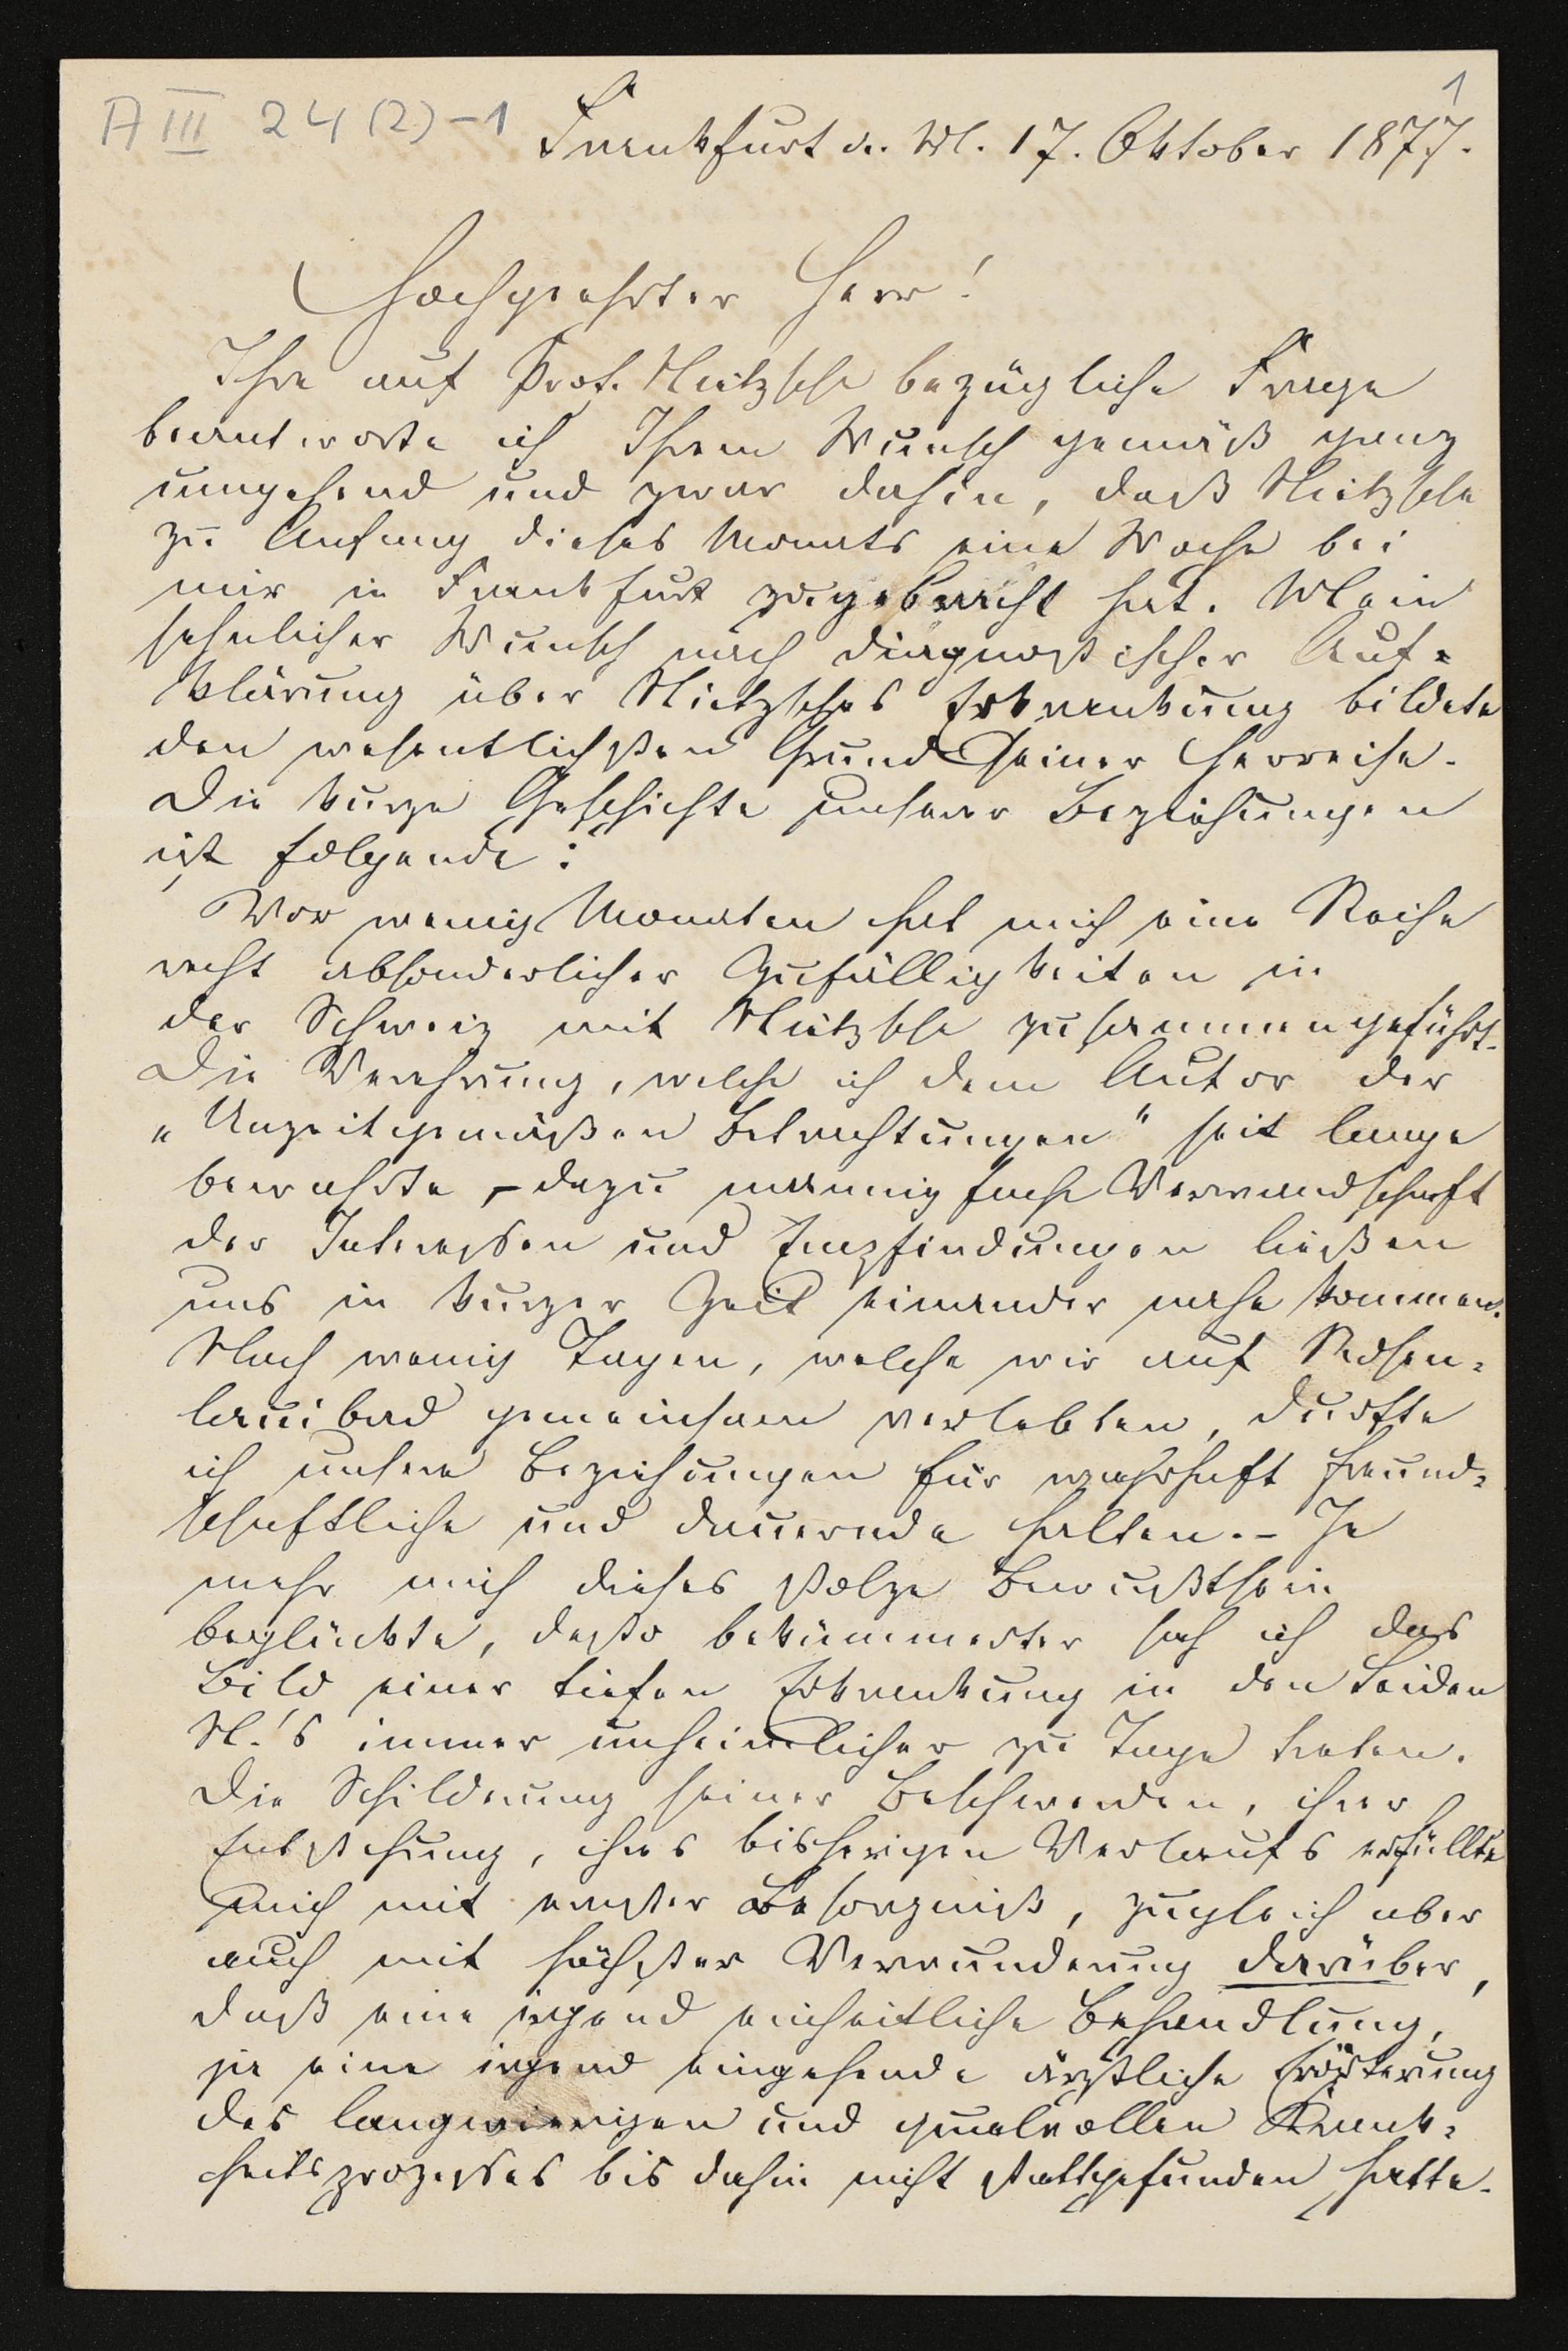 A III 24 (2) - 1
1
Frankfurt a. M. 17. Oktober 1877.
Hochgeehrter Herr!
Ihre auf Prof. Nietzsche bezügliche Frage
beantworte ich Ihrem Wunsch gemäß ganz
umgehend und zwar dahin, daß Nietzsche
zu Anfang dieses Monats eine Woche bei
mir in Frankfurt zugebracht hat. Mein
sehnlicher Wunsch nach diagnostischer Auf-
klärung über Nietzsches Erkrankung bildete
den wesentlichsten Grund seiner Herreise.
Die kurze Geschichte unserer Beziehungen
ist folgende:
Vor wenig Monaten hat mich eine Reihe
recht absonderlicher Zufälligkeiten in
der Schweiz mit Nietzsche zusammengeführt.
Die Verehrung, welche ich dem Autor der
„Unzeitgemäßen Betrachtungen" seit lange
bewahrte, – dazu mannigfache Verwandschaft
der Interessen und Empfindungen ließen
uns in kurzer Zeit einander nahe kommen.
Nach wenig Tagen, welche wir auf Rosen-
lauibad gemeinsam verlebten, durfte
ich unsere Beziehungen für wahrhaft freund-
schaftliche und dauernde halten. – Je
mehr mich dieses stolze Bewußtsein
beglückte, desto bekümmerter sah ich das
Bild einer tiefen Erkrankung in den Leiden
N.'s immer unheimlicher zu Tage treten.
Die Schilderung seiner Beschwerden, ihrer
Entstehung, ihres bisherigen Verlaufs erfüllte
mich mit ernster Besorgniß, zugleich aber
auch mit höchster Verwunderung darüber,
daß eine irgend einheitliche Behandlung,
ja eine irgend eingehende ärztliche Erörterung
des langwierigen und qualvollen Krank-
heitsprozesses bis dahin nicht stattgefunden hatte.